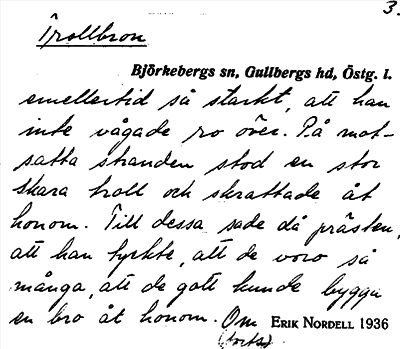 3.
Trollbron
Björkebergs sn, Gullbergs hd, Östg. l.
emellertid så starkt, att han
inte vågade ro över. På mot-
satta stranden stod en stor
skara troll och skrattade åt
honom. Till dessa sade då prästen,
att han tyckte, att de voro så
många, att de gott kunde bygga
en bro åt honom. Om ERIK NORDELL 1936
(forts.)